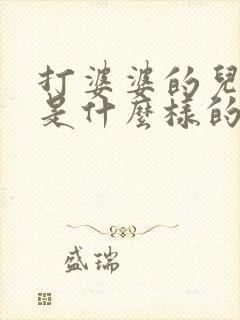 打婆婆的兒
是什麼樣的
盛瑞